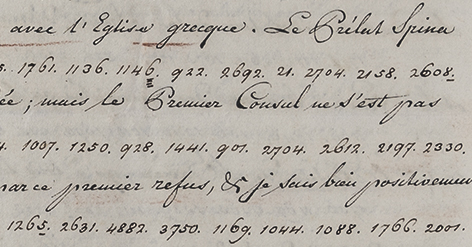 avec l'Eglise grecque. Le Prélat Spina
5. 1761. 1136. 1146. 922. 2692. 21. 2704. 2158. 2608.
ée; mais le Premier Consul ne s'est pas
4. 1007. 1250. 928. 1441. 901. 2704. 2612. 2197. 2330.
par ce premier refus, & je sais bien positivemen
1265. 2631. 4882. 3750. 1169. 1044. 1088. 1766. 2001.